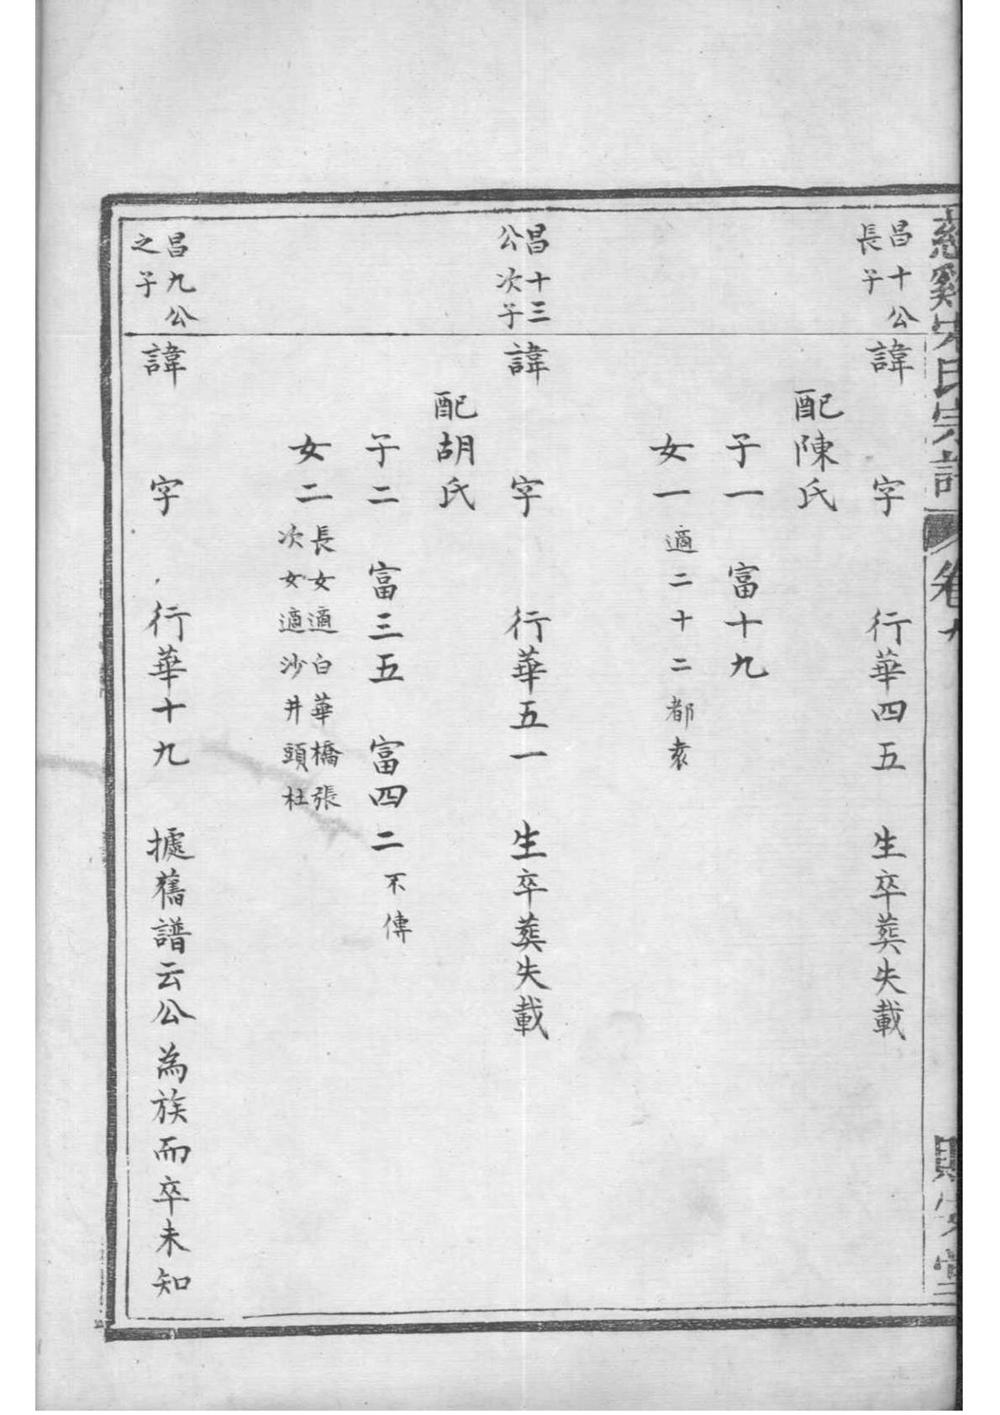 慈谿宋氏宗譜 卷九
昌十公
長子
諱 字 行華四五 生卒葬失載
配陳氏
子一 富十九
女一 適二十二都袁
昌十三
公次子
諱 字 行華五一 生卒葬失載
配胡氏
子二 富三五 富四二 不傳
女二
長女適白華橋張
次女適沙井頭杜
昌九公
之子
諱 字 行華十九 據舊譜云公為族而卒未知